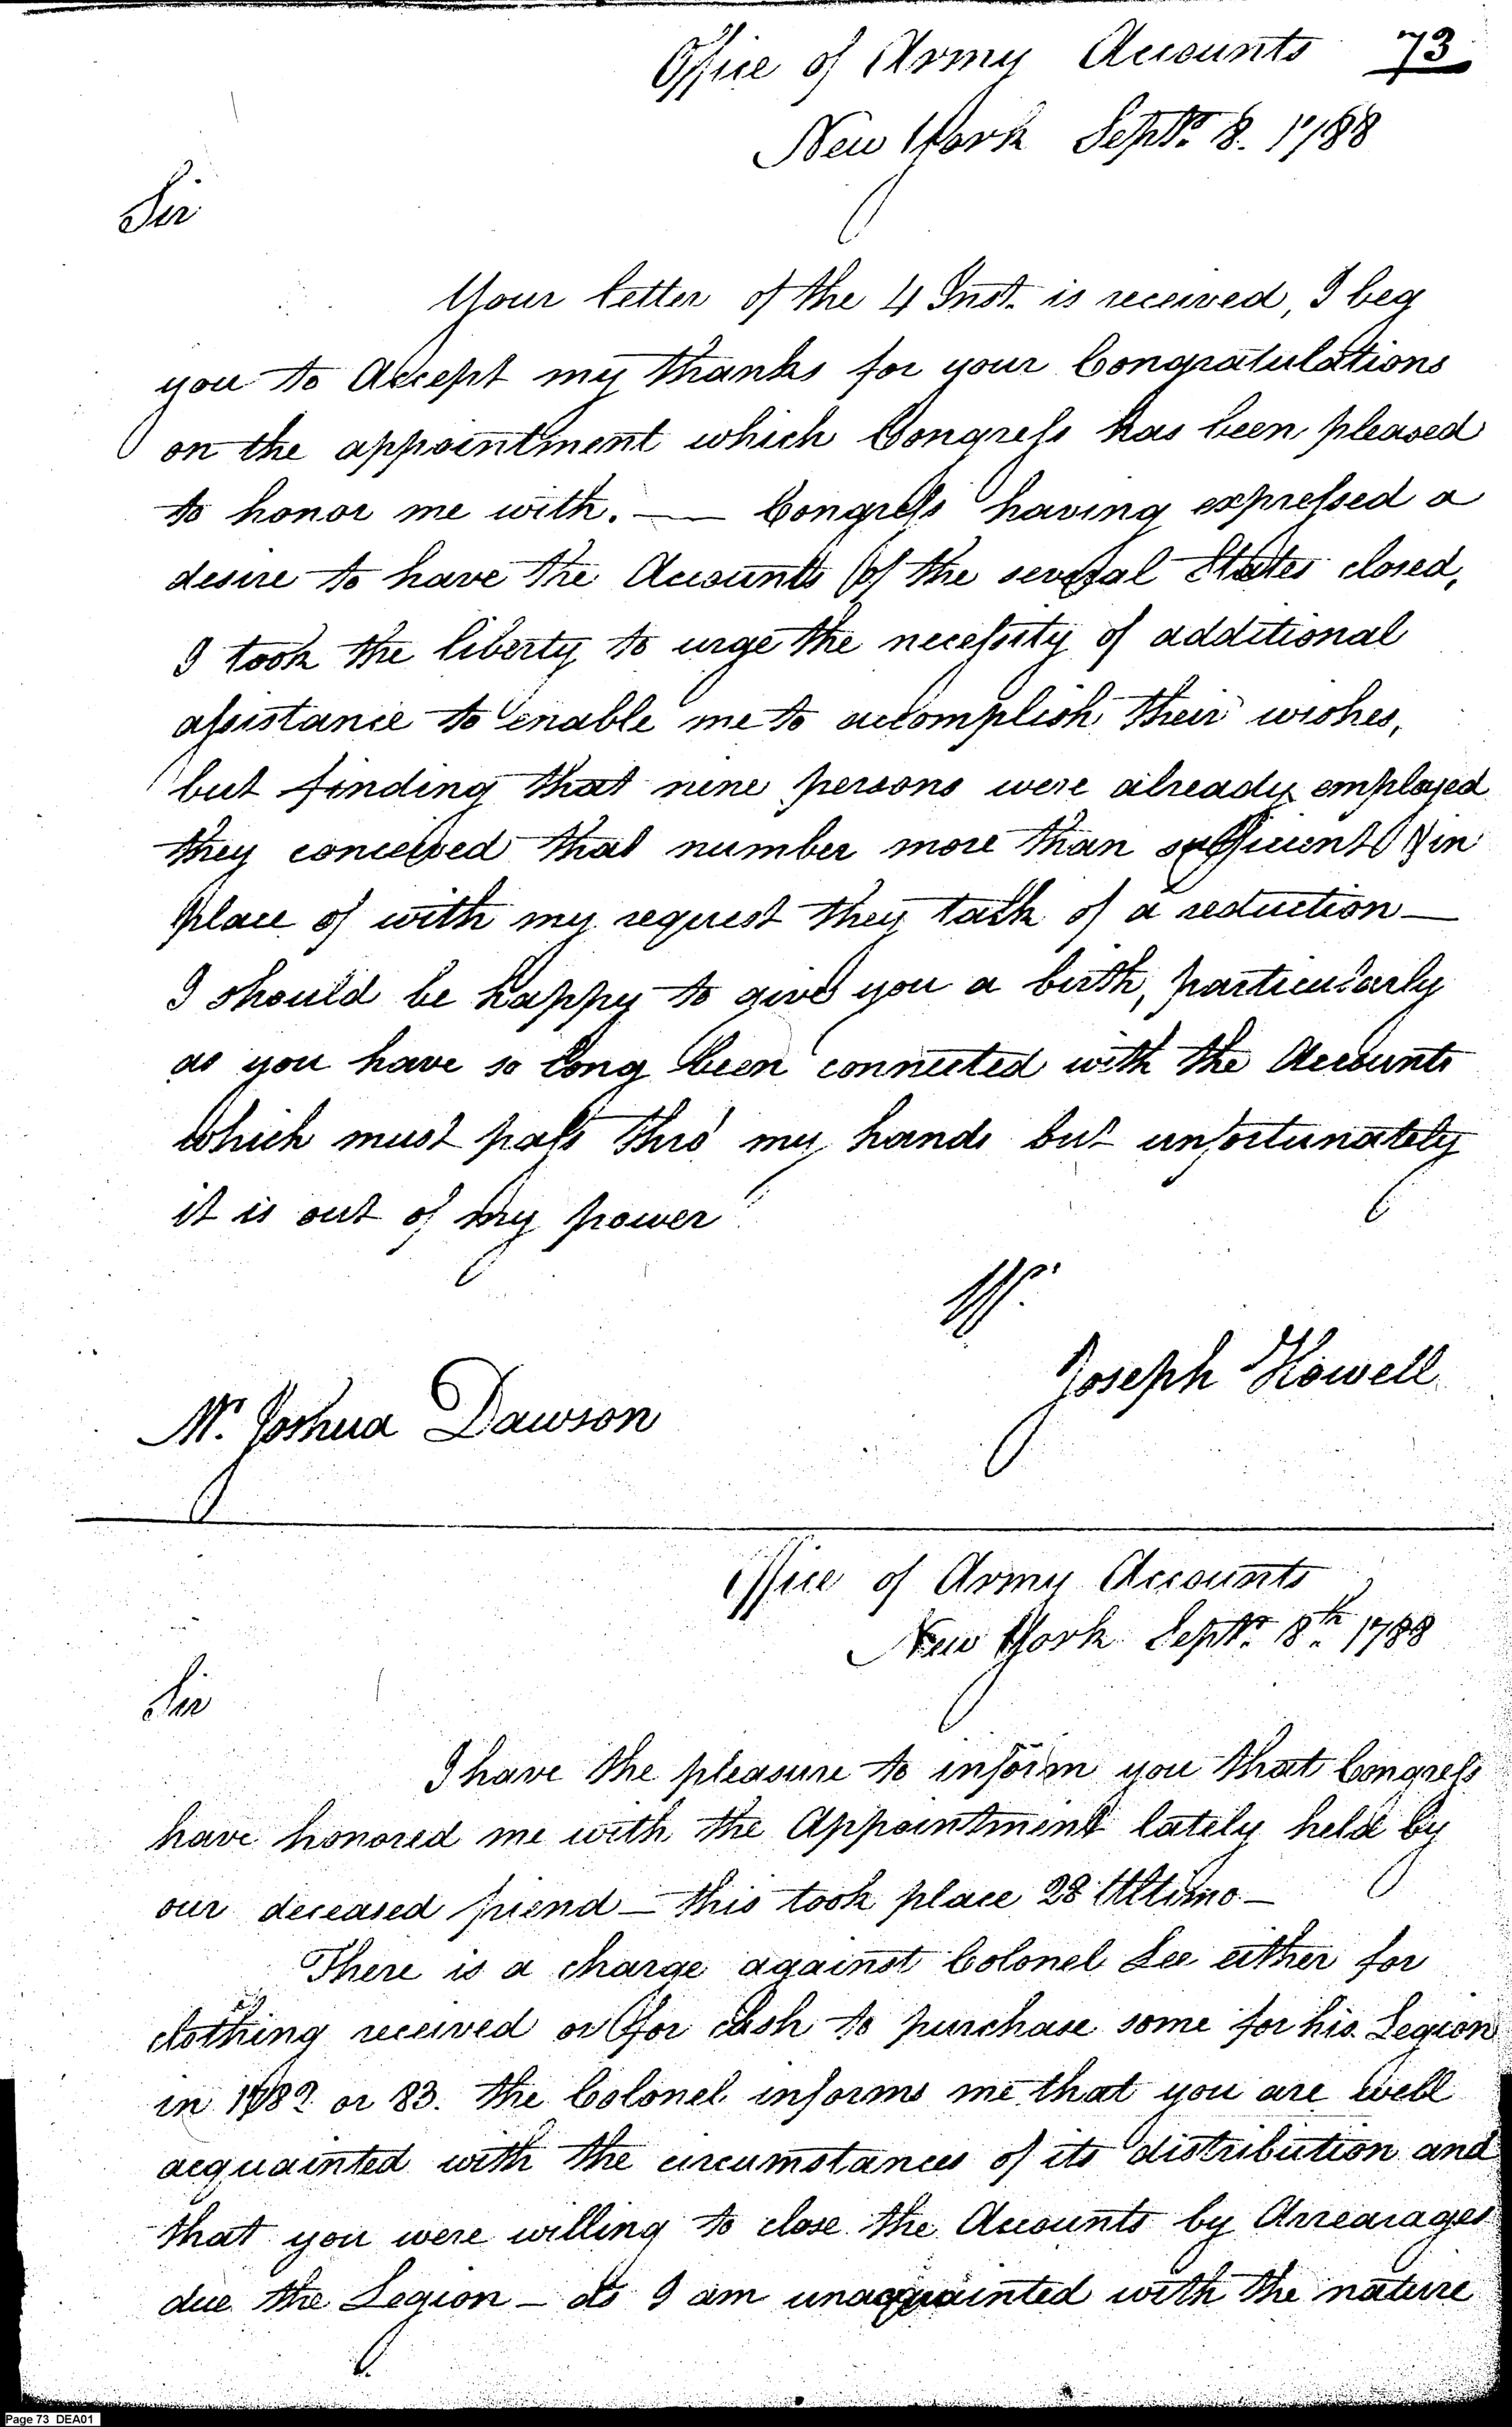 Office of Army Accounts 73
New York Septr. 8. 1788
Sir
Your letter of the 4 Inst. is received, I beg
you to Accept my thanks for your Congratulations
on the appointment which Congress has been pleased
to honor me with. — Congress having expressed a
desire to have the Accounts of the several States closed,
I took the liberty to urge the necessity of additional
assistance to enable me to accomplish their wishes,
but finding that nine persons were already employed
they conceived that number more than sufficient & in
place of with my request they talk of a reduction —
I should be happy to give you a birth, particularly
as you have so long been connected with the Accounts
which must pass thro' my hands but unfortunately
it is out of my power
Joseph Howell
Mr. Joshua Dawson
Office of Army Accounts
New York Septr. 8th. 1788
Sir
I have the pleasure to inform you that Congress
have honored me with the Appointment lately held by
our deceased friend — this took place 28 Ultimo —
There is a charge against Colonel Lee either for
clothing received or for cash to purchase some for his Legion
in 1782 or 83. the Colonel informs me that you are well
acquainted with the circumstances of its distribution and
that you were willing to close the Accounts by Arrearages
due the Legion — as I am unacquainted with the nature
Page 73 DEA01